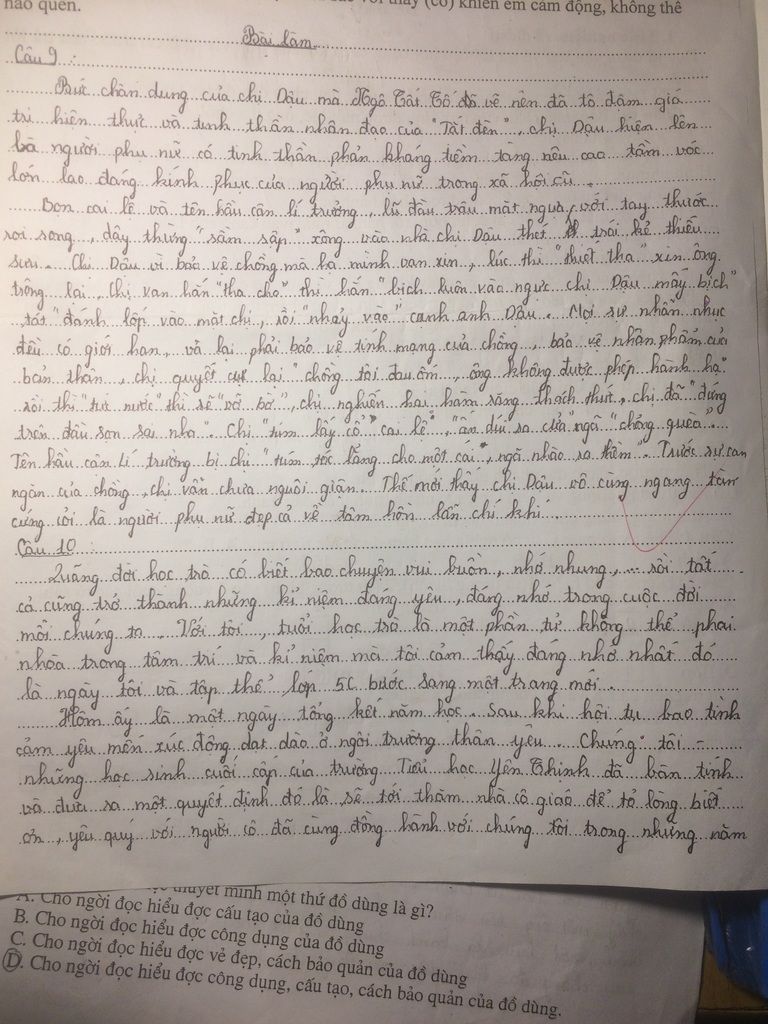 nào quên.
với thầy (cô) khiến em cảm động, không thể
Bài làm
Câu 9 :
Bức chân dung của chị Dậu mà Ngô Tất Tố đã vẽ nên đã tô đậm giá
trị hiện thực và tinh thần nhân đạo của "Tắt đèn", chị Dậu hiện lên
là người phụ nữ có tinh thần phản kháng tiềm tàng nêu cao tầm vóc
lớn lao đáng kính phục của người phụ nữ trong xã hội cũ.
Bọn cai lệ và tên hầu cận lí trưởng, lũ đầu trâu mặt ngựa với tay thước
roi song, dây thừng "sầm sập" xông vào nhà chị Dậu thét trói kẻ thiếu
sưu. Chị Dậu vì bảo vệ chồng mà hạ mình van xin, lúc thì "thiết tha" xin ông
trông lại, chị van hắn "tha cho" thì hắn "bịch luôn vào ngực chị Dậu mấy bịch"
tát "đánh bốp vào mặt chị, rồi "nhảy vào" cạnh anh Dậu. Mọi sự nhẫn nhục
đều có giới hạn, và lại phải bảo vệ tính mạng của chồng, bảo vệ nhân phẩm của
bản thân, chị quyết cự lại "chồng tôi đau ốm, ông không được phép hành hạ"
rồi thì "tức nước" thì sẽ "vỡ bờ", chị nghiến hai hàm răng thách thức, chị đã "đứng
trên đầu sọn sai nha". Chị "túm lấy cổ" cai lệ", "ấn dúi ra cửa" ngã "chỏng quèo".
Tên hầu cận Lí trưởng bị chị "túm tóc lẳng cho một cái", ngã nhào ra thềm". Trước sự can
ngăn của chồng, chị vẫn chưa nguôi giận. Thế mới thấy chị Dậu vô cùng ngang tàn
cứng cỏi là người phụ nữ đẹp cả về tâm hồn lẫn chí khí.
Câu 10 :
Quãng đời học trò có biết bao chuyện vui buồn, nhớ nhung, ... rồi tất
cả cũng trở thành những kỉ niệm đáng yêu, đáng nhớ trong cuộc đời
mỗi chúng ta. Với tôi, tuổi học trò là một phần tử không thể phai
nhòa trong tâm trí và kỉ niệm mà tôi cảm thấy đáng nhớ nhất đó
là ngày tôi và tập thể lớp 5C bước sang một trang mới.
Hôm ấy là một ngày tổng kết năm học. Sau khi hội tụ bao tình
cảm yêu mến xúc động dạt dào ở ngôi trường thân yêu. Chúng tôi -
những học sinh cuối cấp của trường Tiểu học Yên Thịnh đã bàn tính
và đưa ra một quyết định đó là sẽ tới thăm nhà cô giáo để tỏ lòng biết
ơn, yêu quý với người cô đã cùng đồng hành với chúng tôi trong những năm
thuyết minh một thứ đồ dùng là gì?
A. Cho ngời đọc hiểu đợc cấu tạo của đồ dùng
B. Cho ngời đọc hiểu đợc công dụng của đồ dùng
C. Cho ngời đọc hiểu đợc vẻ đẹp, cách bảo quản của đồ dùng
D. Cho ngời đọc hiểu đợc công dụng, cấu tạo, cách bảo quản của đồ dùng.